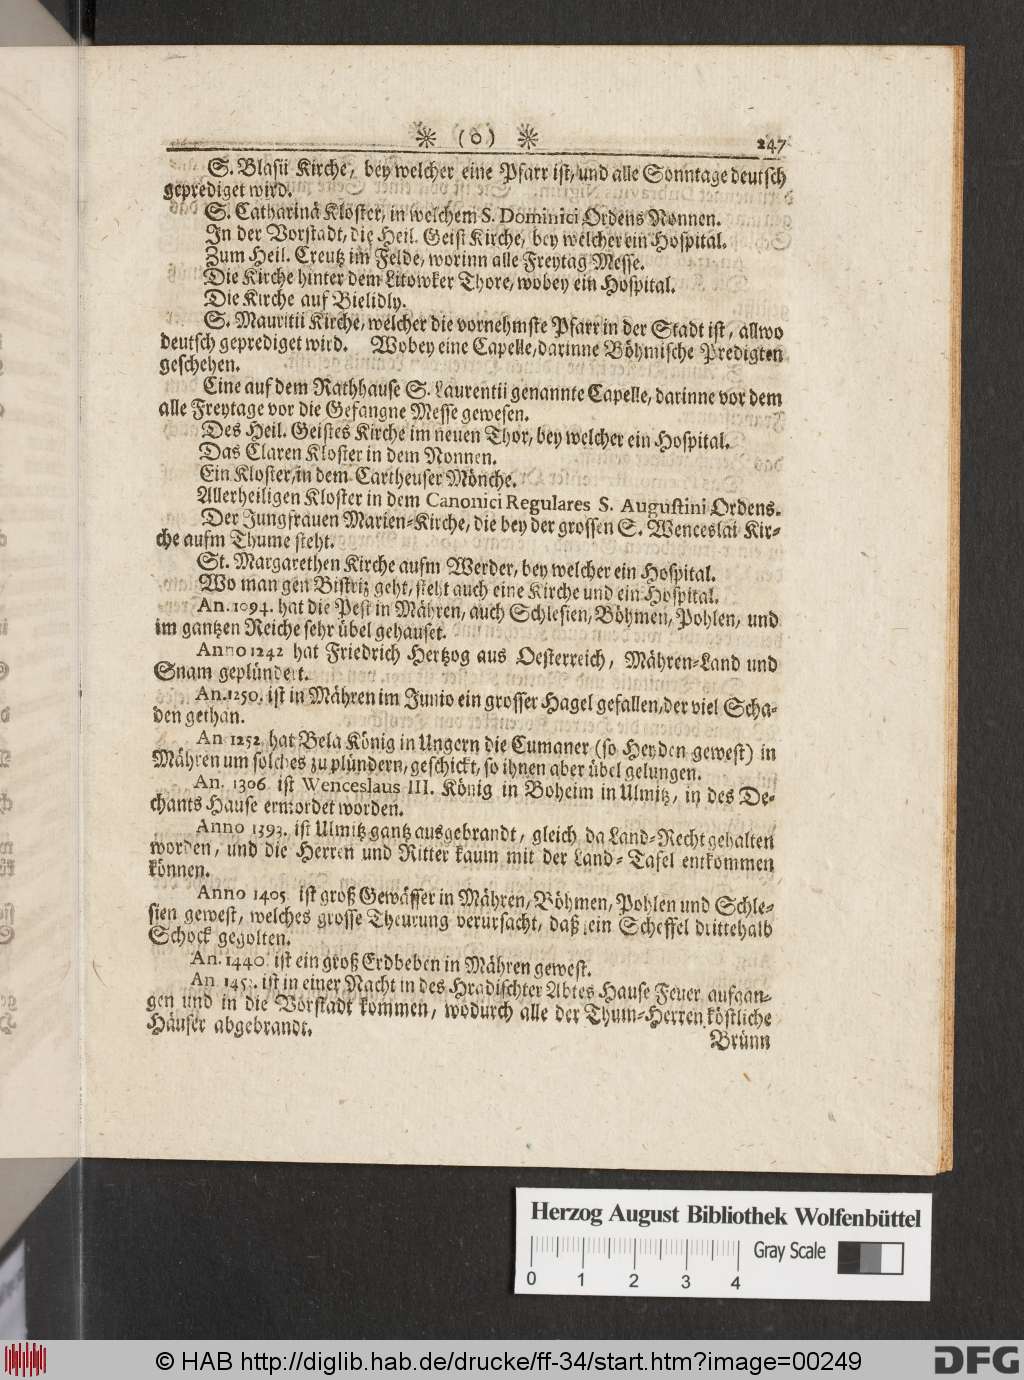 ❋ (0) ❋ 247
S. Blasii Kirche, bey welcher eine Pfarr ist, und alle Sonntage deutsch
geprediget wird.
S. Catharinä Kloster, in welchem S. Dominici Ordens Nonnen.
In der Vorstadt, die Heil. Geist Kirche, bey welcher ein Hospital.
Zum Heil. Creutz im Felde, worinn alle Freytag Messe.
Die Kirche hinter dem Litowker Thore, wobey ein Hospital.
Die Kirche auf Bielidly.
S. Mauritii Kirche, welcher die vornehmste Pfarr in der Stadt ist, allwo
deutsch geprediget wird. Wobey eine Capelle, darinne Böhmische Predigten
geschehen.
Eine auf dem Rathhause S. Laurentii genannte Capelle, darinne vor dem
alle Freytage vor die Gefangne Messe gewesen.
Des Heil. Geistes Kirche im neuen Thor, bey welcher ein Hospital.
Das Claren Kloster in dem Nonnen.
Ein Kloster, in dem Cartheuser Mönche.
Allerheiligen Kloster in dem Canonici Regulares S. Augustini Ordens.
Der Jungfrauen Marien-Kirche, die bey der grossen S. Wenceslai Kir-
che aufm Thume steht.
St. Margarethen Kirche aufm Werder, bey welcher ein Hospital.
Wo man gen Bistriz geht, steht auch eine Kirche und ein Hospital.
An. 1094. hat die Pest in Mähren, auch Schlesien, Böhmen, Pohlen, und
im gantzen Reiche sehr übel gehauset.
Anno 1242 hat Friedrich Hertzog aus Oesterreich, Mähren-Land und
Snam geplündert.
An. 1250. ist in Mähren im Junio ein grosser Hagel gefallen, der viel Scha-
den gethan.
An 1252. hat Bela König in Ungern die Cumaner (so Heyden gewest) in
Mähren um solches zu plündern, geschickt, so ihnen aber übel gelungen.
An. 1306. ist Wenceslaus III. König in Boheim in Ulmitz, in des De-
chants Hause ermordet worden.
Anno 1393. ist Ulmitz gantz ausgebrandt, gleich da Land-Recht gehalten
worden, und die Herren und Ritter kaum mit der Land-Tafel entkommen
können.
Anno 1405. ist groß Gewässer in Mähren, Böhmen, Pohlen und Schle-
sien gewest, welches grosse Theurung verursacht, daß ein Scheffel drittehalb
Schock gegolten.
An. 1440. ist ein groß Erdbeben in Mähren gewest.
An 145. ist in einer Nacht in des Hradischter Abtes Hause Feuer aufgan-
gen und in die Vorstadt kommen, wodurch alle der Thum-Herren köstliche
Häuser abgebrandt.
Brünn
Herzog August Bibliothek Wolfenbüttel
Gray Scale
0 1 2 3 4
© HAB http://diglib.hab.de/drucke/ff-34/start.htm?image=00249
DFG